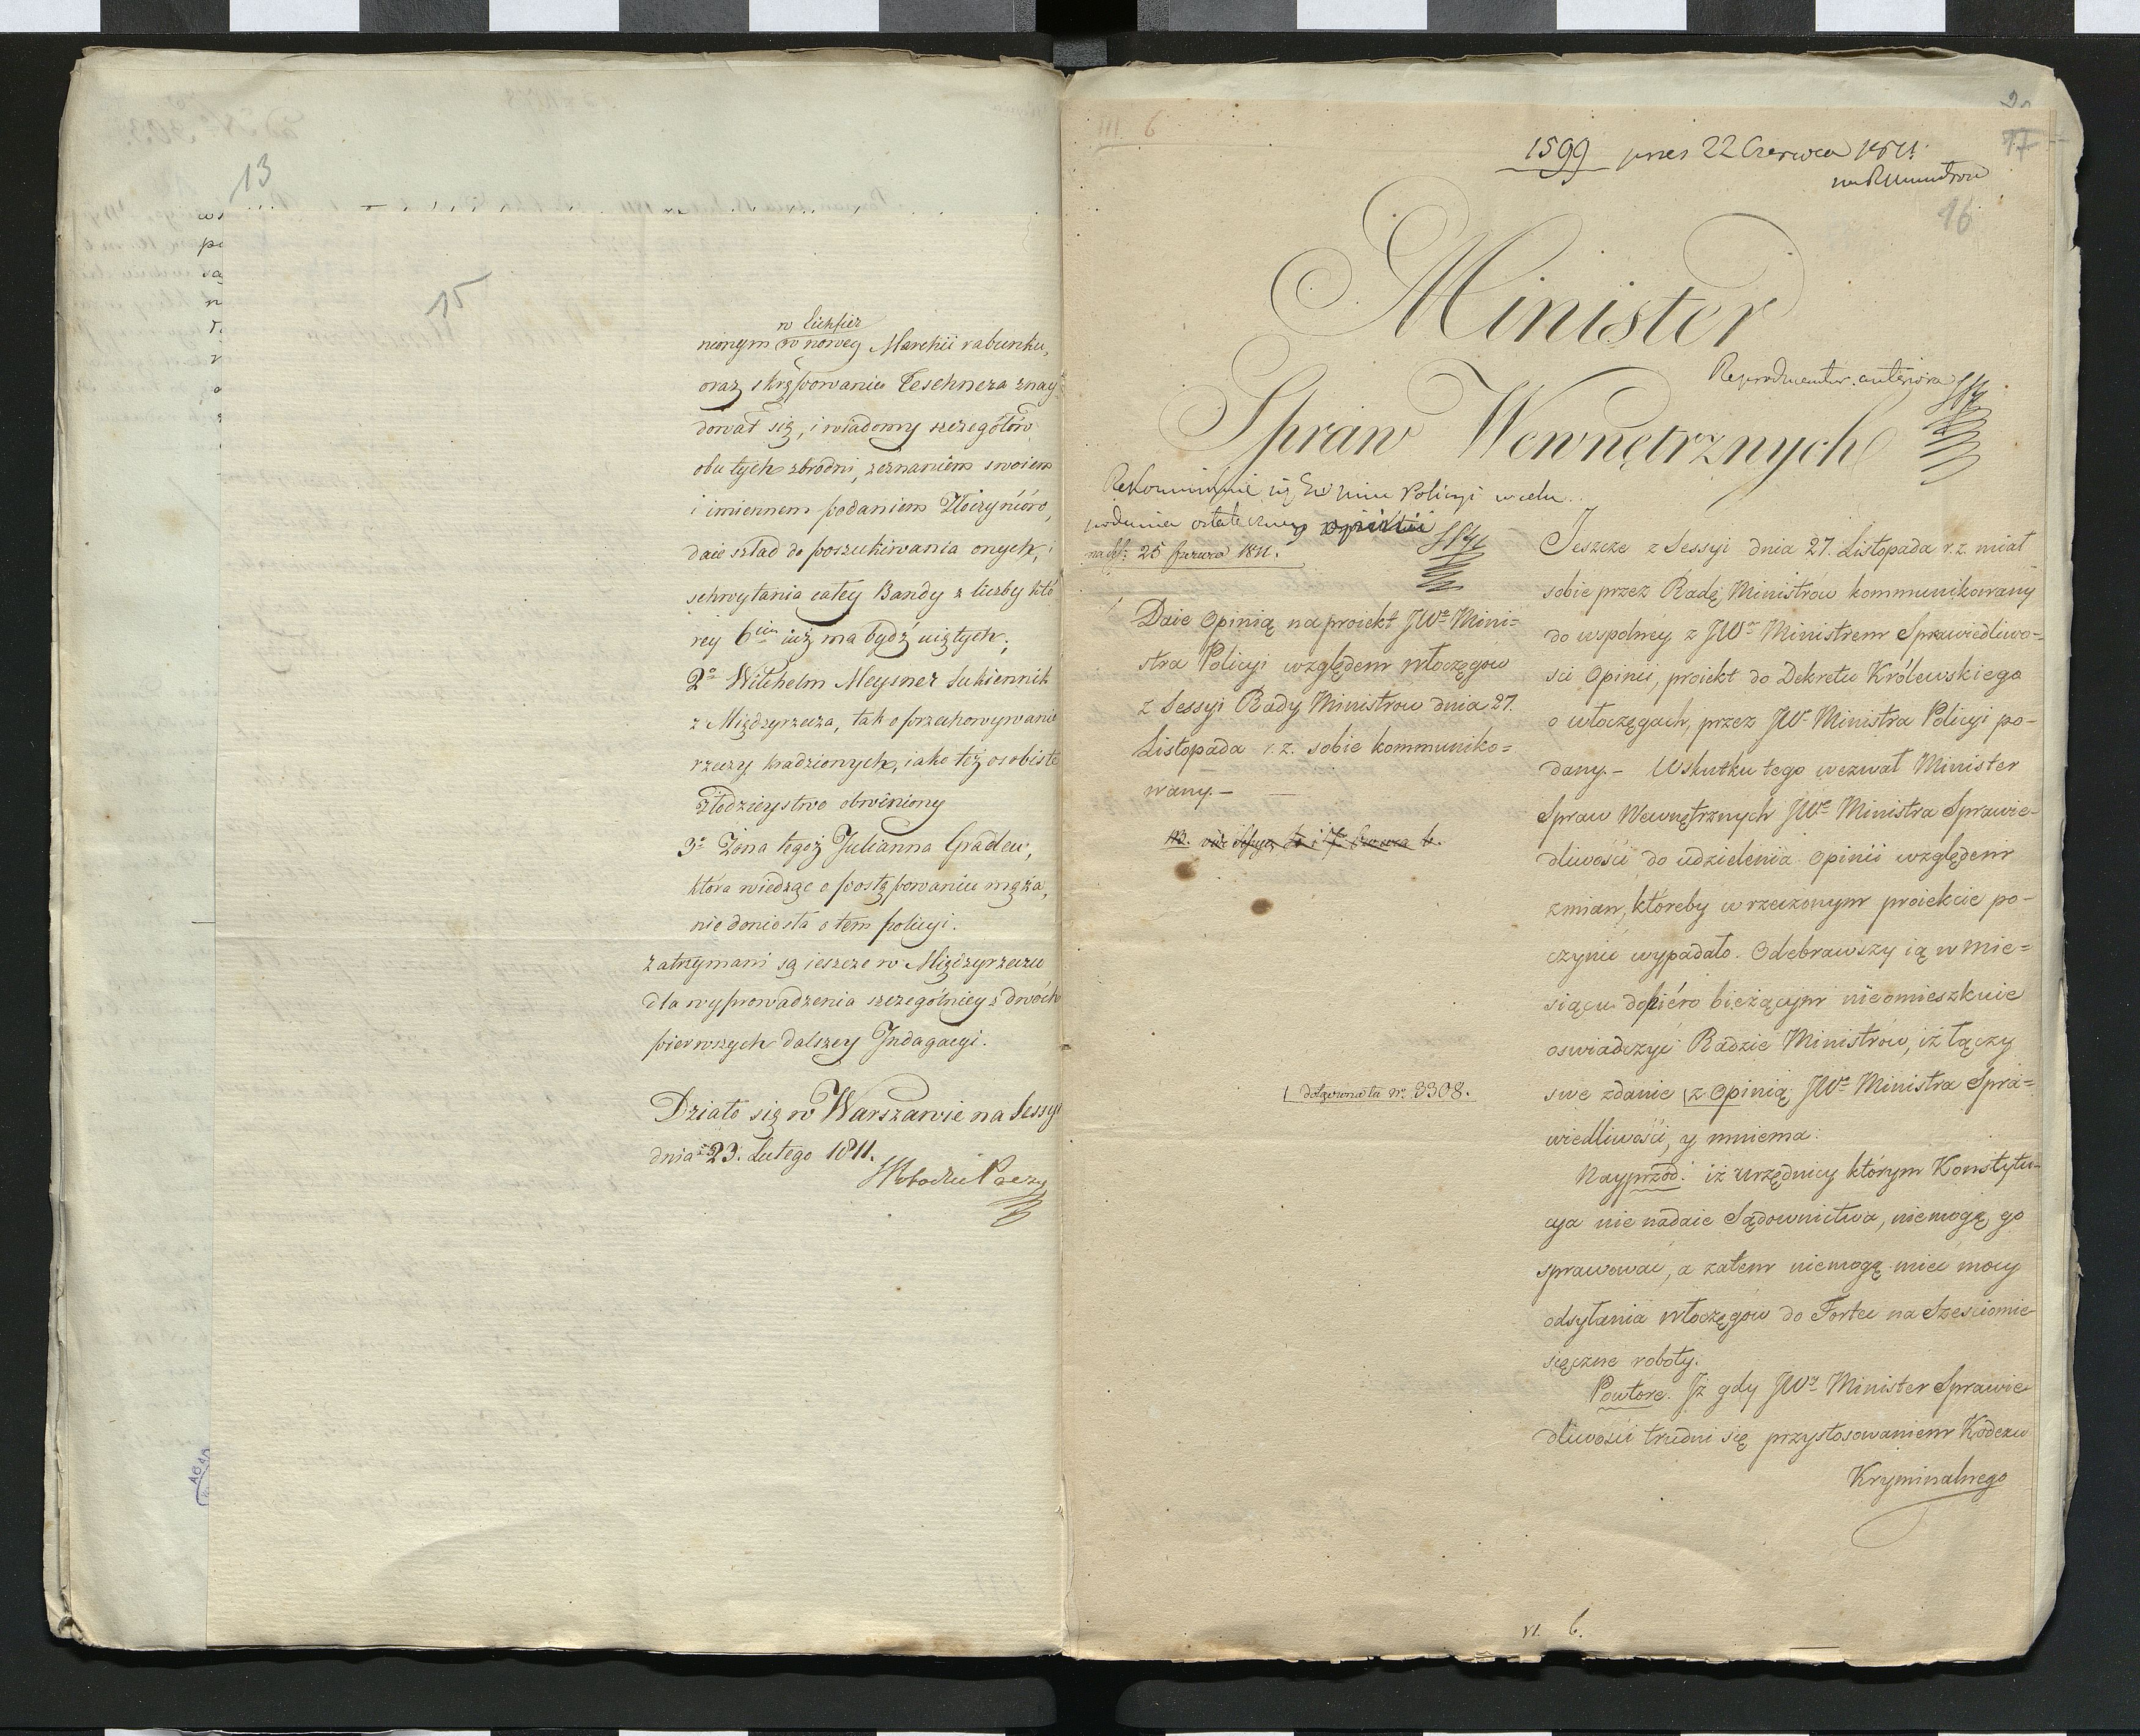 13
15
w Lichfier
nionym w nowey Marchii rabunku,
oraz strzępowaniu Teschnera znay
dował się, i wiadomy szczegółów
obu tych zbrodni, zeznaniem swoiem
i imiennem podaniem Złoczyńców,
daie szlad do poszukiwania onych, i
schwytania całey Bandy z liczby któ
rey 6ciu iuż ma bydź uiętych;
2o Wilhelm Meysner Sukiennik
z Międzyrzecza, tak o przechowywanie
rzeczy kradzionych, iako też osobiste
złodzieystwo obwiniony
3o Żona tegoż Julianna Gradleu,
która wiedząc o postępowaniu męża,
nie doniosła o tem policyi.
zatrzymani są ieszcze w Międzyrzeczu
dla wyprowadzenia szczególniey z dwóch
pierwszych dalszey Indagacyi.
Działo się w Warszawie na Sessyi
dnia 23. Lutego 1811.
III. 6
2
17
1599 pres 22 Czerwca 1811.
16
Minister
Spraw Wewnętrznych
Reproducatur. anteriora
Policyi w celu
podania ostateczney opinii
na Ss: 25 Czerwca 1811.
Daie Opinią na proiekt JWo Mini=
stra Policyi względem włóczęgow
z Sessyi Rady Ministrow dnia 27.
Listopada r. z. sobie kommuniko=
wany.—
dołączona ta Nr. 3308.
Jeszcze z Sessyi dnia 27. Listopada r. z. miał
sobie przez Radę Ministrow kommunikowany
do wspolney z JWm Ministrem Sprawiedliwo=
sci Opinii, proiekt do Dekretu Królewskiego
o włóczęgach, przez JWo Ministra Policyi po-
dany.— Wskutku tego wezwał Minister
Spraw Wewnętrznych JWo Ministra Sprawie-
dliwości do udzielenia Opinii względem
zmian, któreby w rzeczonym proiekcie po-
czynić wypadało. Odebrawszy ią w mie=
siącu dopiéro bieżącym nieomieszkuie
oswiadczyć Radzie Ministrow, iż łączy
swe zdanie z Opinią JWo Ministra Spra=
wiedliwości, y mniema:
Nayprzód: iż Urzędnicy którym Konstytu-
cya nie nadaie Sądownictwa, niemogą go
sprawować, a zatem niemogą mieć mocy
odsyłania włóczęgow do Fortec na Sześciomie
sięczne roboty.
Powtore. Iż gdy JWy Minister Sprawie
dliwości trudni się przystosowaniem Kodexu
Kryminalnego
VI. 6.